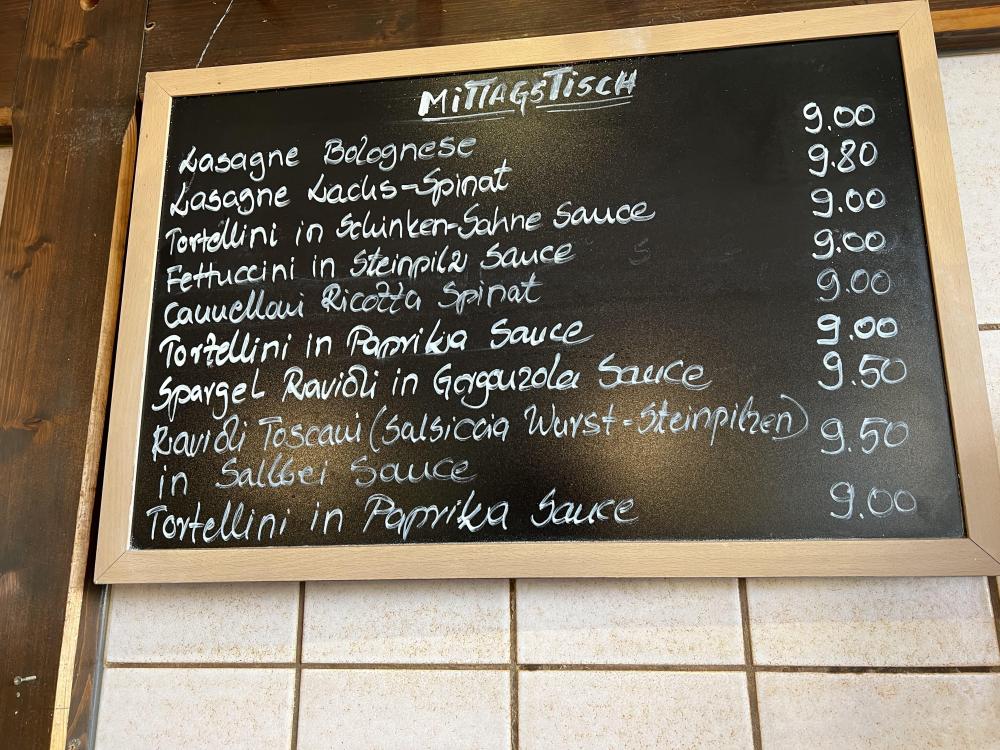 MITTAGSTISCH
Lasagne Bolognese 9.00
Lasagne Lachs-Spinat 9.80
Tortellini in Schinken-Sahne Sauce 9.00
Fettuccini in Steinpilz Sauce 9.00
Cannelloni Ricotta Spinat 9.00
Tortellini in Paprika Sauce 9.00
Spargel Ravioli in Gorgonzola Sauce 9.50
Ravioli Toscani (Salsiccia Wurst-Steinpilzen) 9.50
in Salbei Sauce
Tortellini in Paprika Sauce 9.00